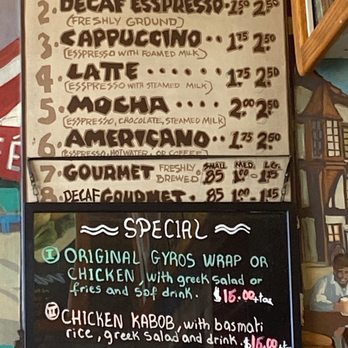 2. DECAF ESSPRESSO. 1.50 2.50
(FRESHLY GROUND)
3. CAPPUCCINO.. 1.75 2.50
(ESSPRESSO WITH FOAMED MILK)
4. LATTE...... 1.75 2.50
(ESSPRESSO WITH STEAMED MILK)
5. MOCHA..... 2.00 2.50
(ESSPRESSO, CHOCOLATE, STEAMED MILK)
6. AMERICANO. 1.75 2.50
(ESSPRESSO, HOT WATER, OR COFFEE)
SMALL MED. LG.
7. GOURMET FRESHLY BREWED .85 1.00 1.15
8. DECAF GOURMET .85 1.00
SPECIAL
I ORIGINAL GYROS WRAP OR
CHICKEN, with greek salad or
fries and sof drink. $15.00+tax
II CHICKEN KABOB, with basmati
rice, greek salad and drink.